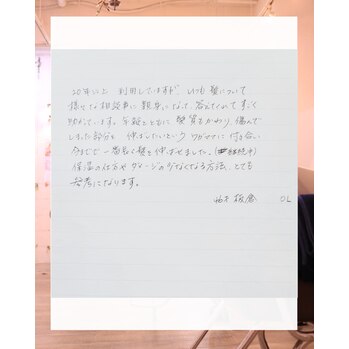 20年以上 利用していますが いつも 髪について
様々な相談事に 親身になって、答えてくれて すごく
助かっています。年齢とともに 髪質もかわり、傷んで
しまった部分を 伸ばしたいという ワガママに 付き合い
今までで 一番長く髪を伸ばせました。(継続中)
保湿の仕方や ダメージの少なくなる方法、とても
参考になります。
板倉 OL